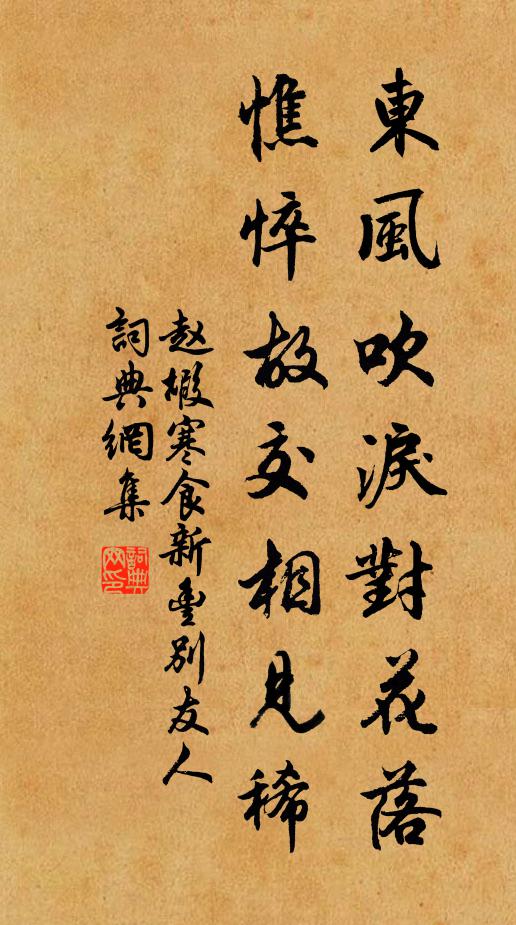 東風吹淚對花落
憔悴故交相見稀
赵嘏寒食新豊別友人
詞典網集
詞典
网印